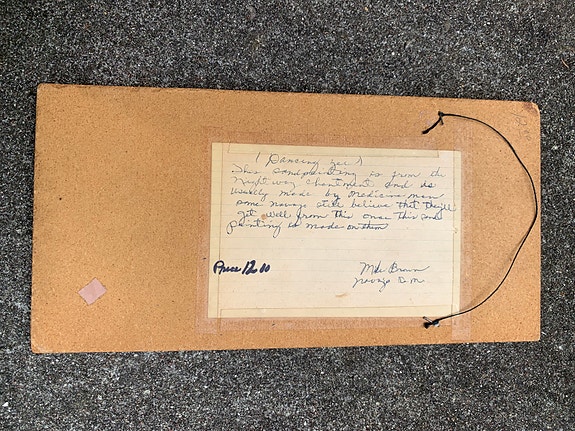 ( Dancing Yei )
This sandpainting is from the
Nightway Chantment and is
usually made by medicine man
some navajo still believe that they'll
get well from this once this sand
painting is made on them
Price 12.00
Mike Brown
Navajo N.M